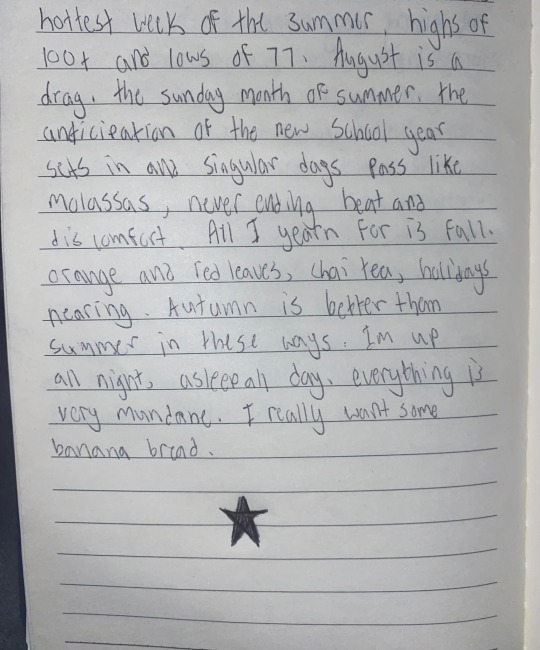 hottest week of the summer, highs of
100+ and lows of 77. August is a
drag. the sunday month of summer. the
anticipation of the new school year
sets in and singular days pass like
molassas, never ending heat and
discomfort. All I yearn for is fall.
orange and red leaves, chai tea, holidays
nearing. Autumn is better than
summer in these ways. Im up
all night, asleep all day. everything is
very mundane. I really want some
banana bread.